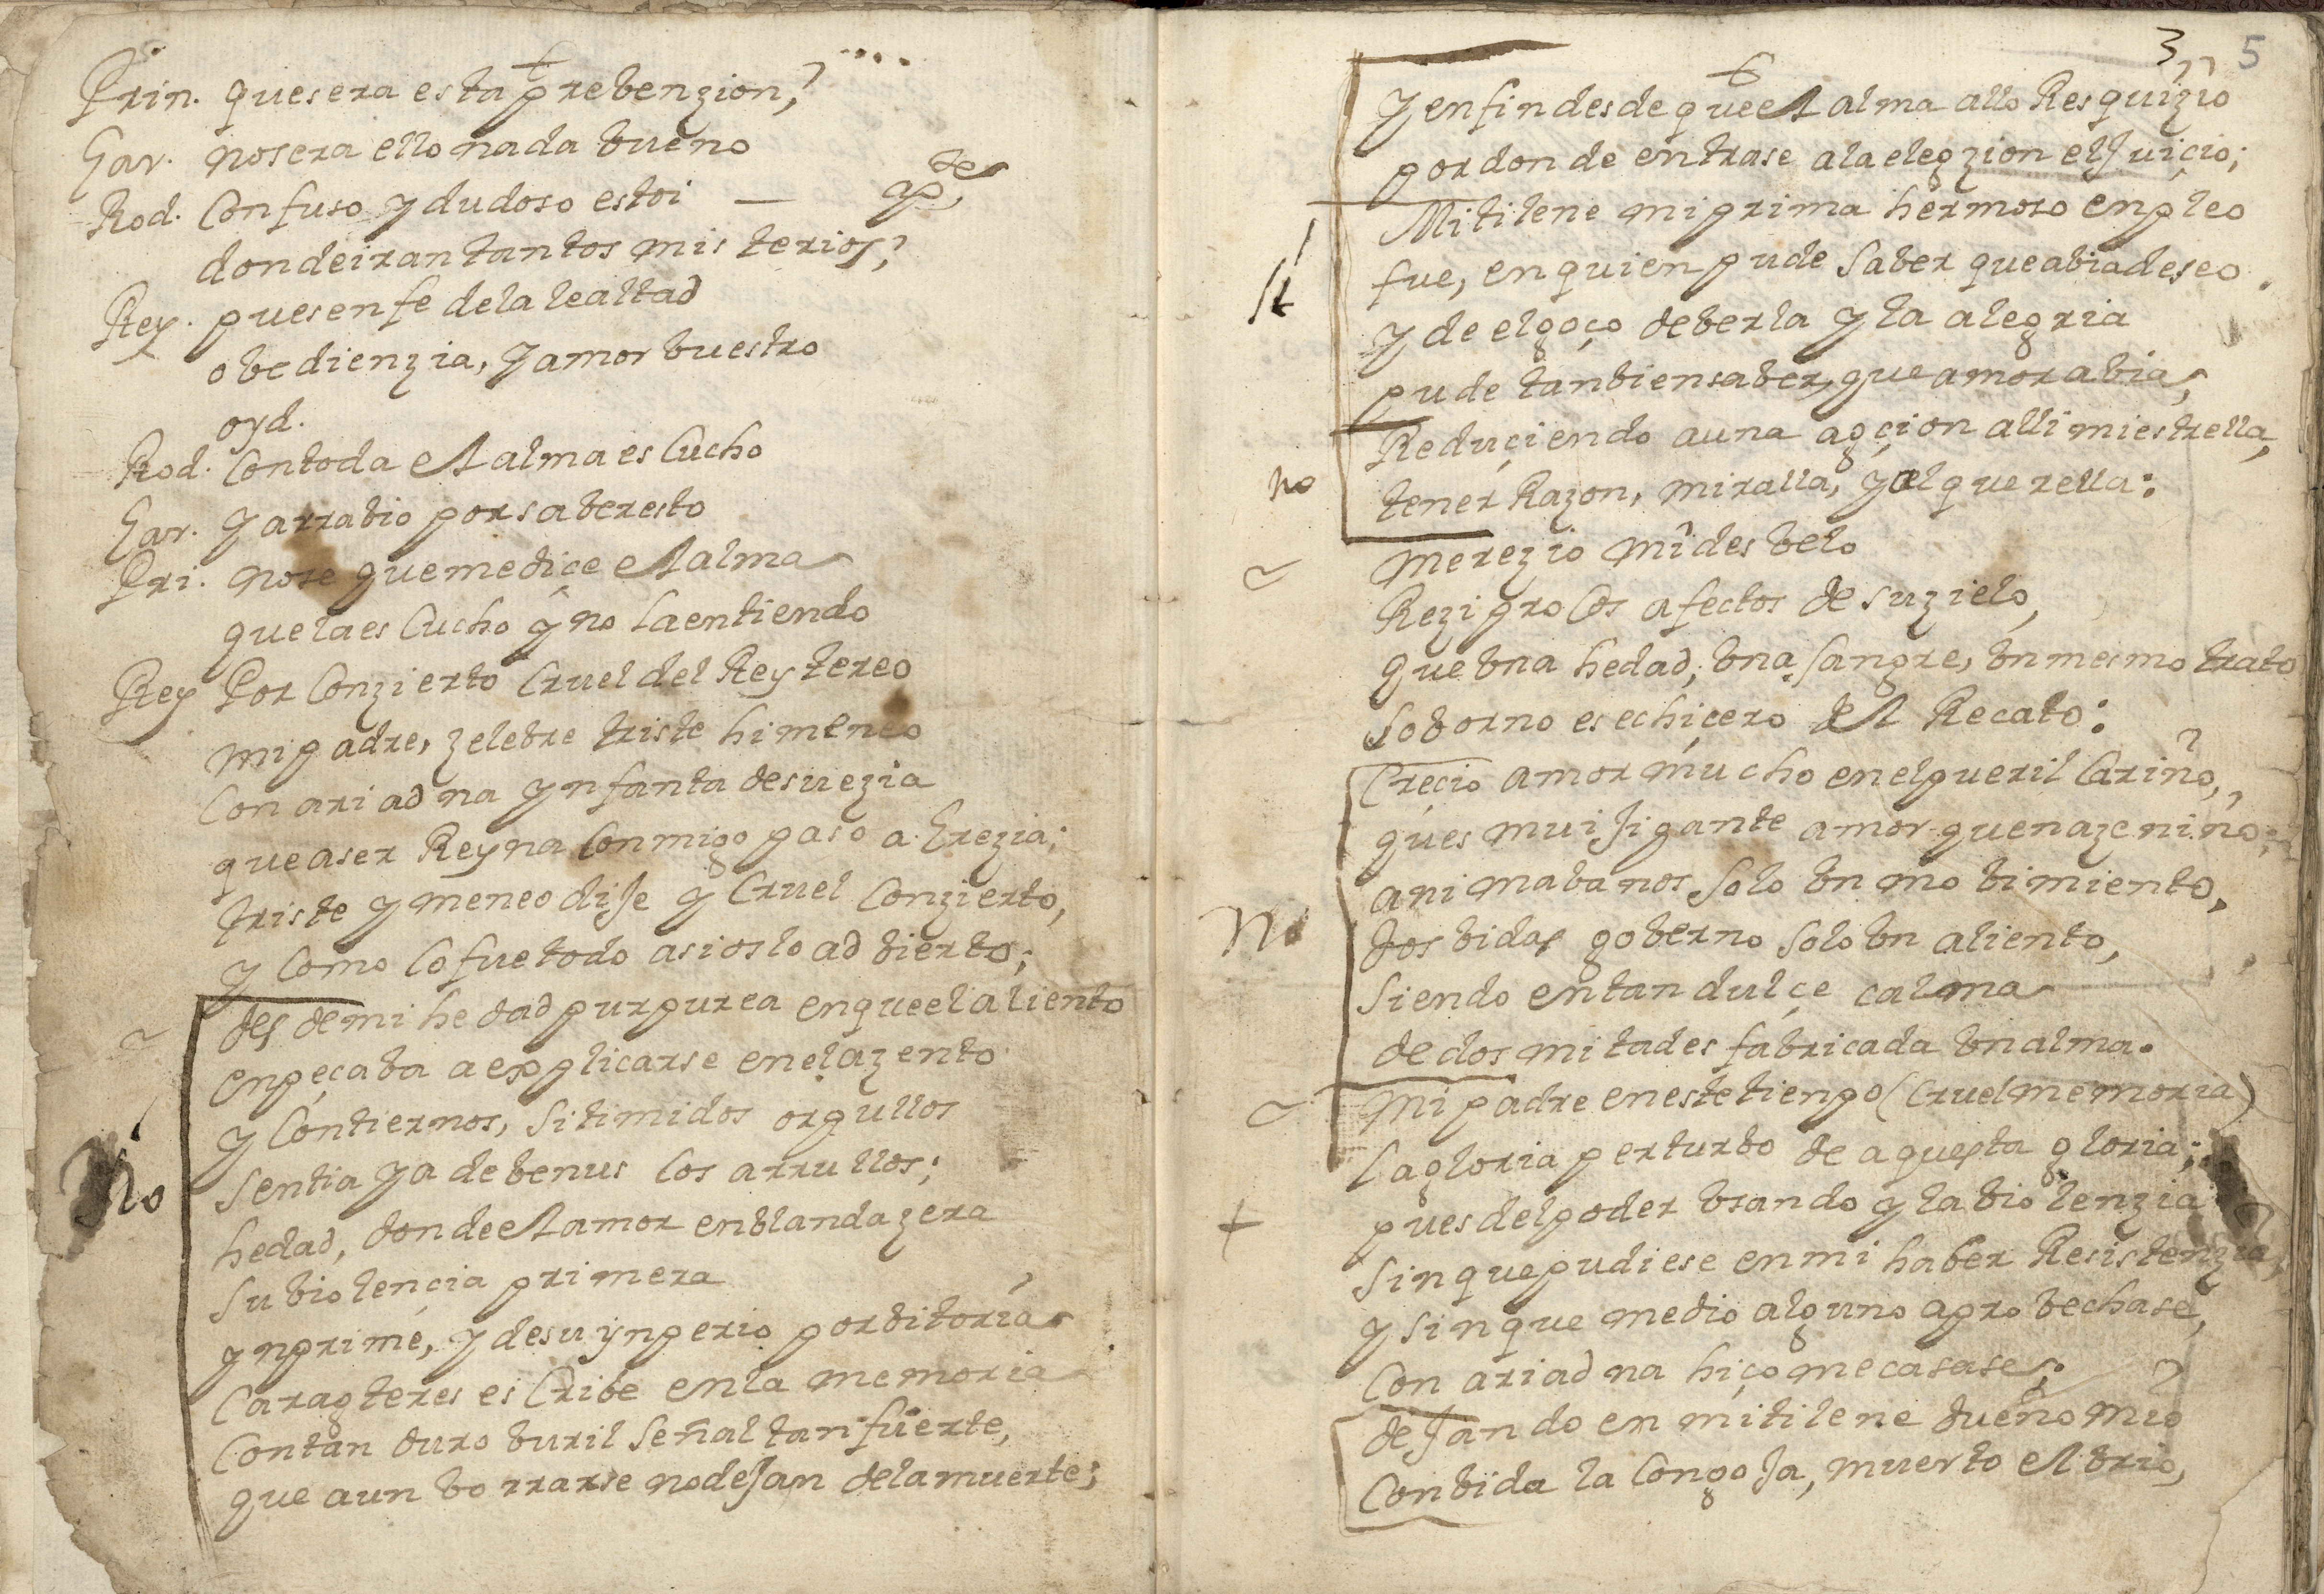 Prin. que sera esta prebenzion,?
Gar. no sera ello nada bueno
Rod. Confuso y dudoso estoi — ap.te
donde iran tantos misterios,?
Rey. pues en fe de la lealtad
obedienzia, y amor buestro
oyd.
Rod. Con toda el alma escucho
Gar. y arrabio por saber esto
Pri. no se que me diçe el alma
que la escucho y no la entiendo
Rey Por Conzierto Cruel del Rey tereo
mi padre, zelebre triste himeneo
Con ariadna ynfanta de suezia
que a ser Reyna Conmigo paso a Grezia;
triste ymeneo dije y Cruel Conzierto,
y como lo fue todo asi os lo adbierto;
desde mi hedad purpurea en que el aliento
enpeçaba a explicarse en el azento
y Con tiernos, si timidos orgullos
sentia ya de benus los arrullos;
no
hedad, donde el amor en blanda zera
su biolençia primera
ynprime, y de su ynperio por bitoria
Caragteres escribe en la memoria
Con tan duro buril señal tan fuerte,
que aun borrarse no dejan de la muerte;
3 5
y en fin desde que el alma allo Resquizio
por donde entrase a la elegzion el juiçio;
Mitilene mi prima hermoso enpleo
si
fue, en quien pude saber que abia deseo.
y de el goço de berla y la alegria
pude tanbien saber, que amor abia,
Reduçiendo a una agçion alli mi estrella,
no
tener Razon, miralla, y el querella:
merezio mi desbelo
Reziprocos afectos de su zielo,
que una hedad, una sangre, un mesmo trato
soborno es echiçero del Recato:
Creçio amor mucho en el pueril Cariño,
ques mui jigante amor que naze niño;
animabanos solo un mobimiento,
no
dos bidas goberno solo un aliento,
siendo en tan dulçe calma
de dos mitades fabricada un alma.
mi padre en este tienpo (Cruel memoria)
la gloria perturbo de aquesta gloria;
pues del poder usando y la biolenzia
sin que pudiese en mi haber Resistenzia,
y sin que medio alguno aprobechase,
Con ariadna hiço me casase;
dejando en mitilene dueño mio
Con bida la Congoja, muerto el brio,